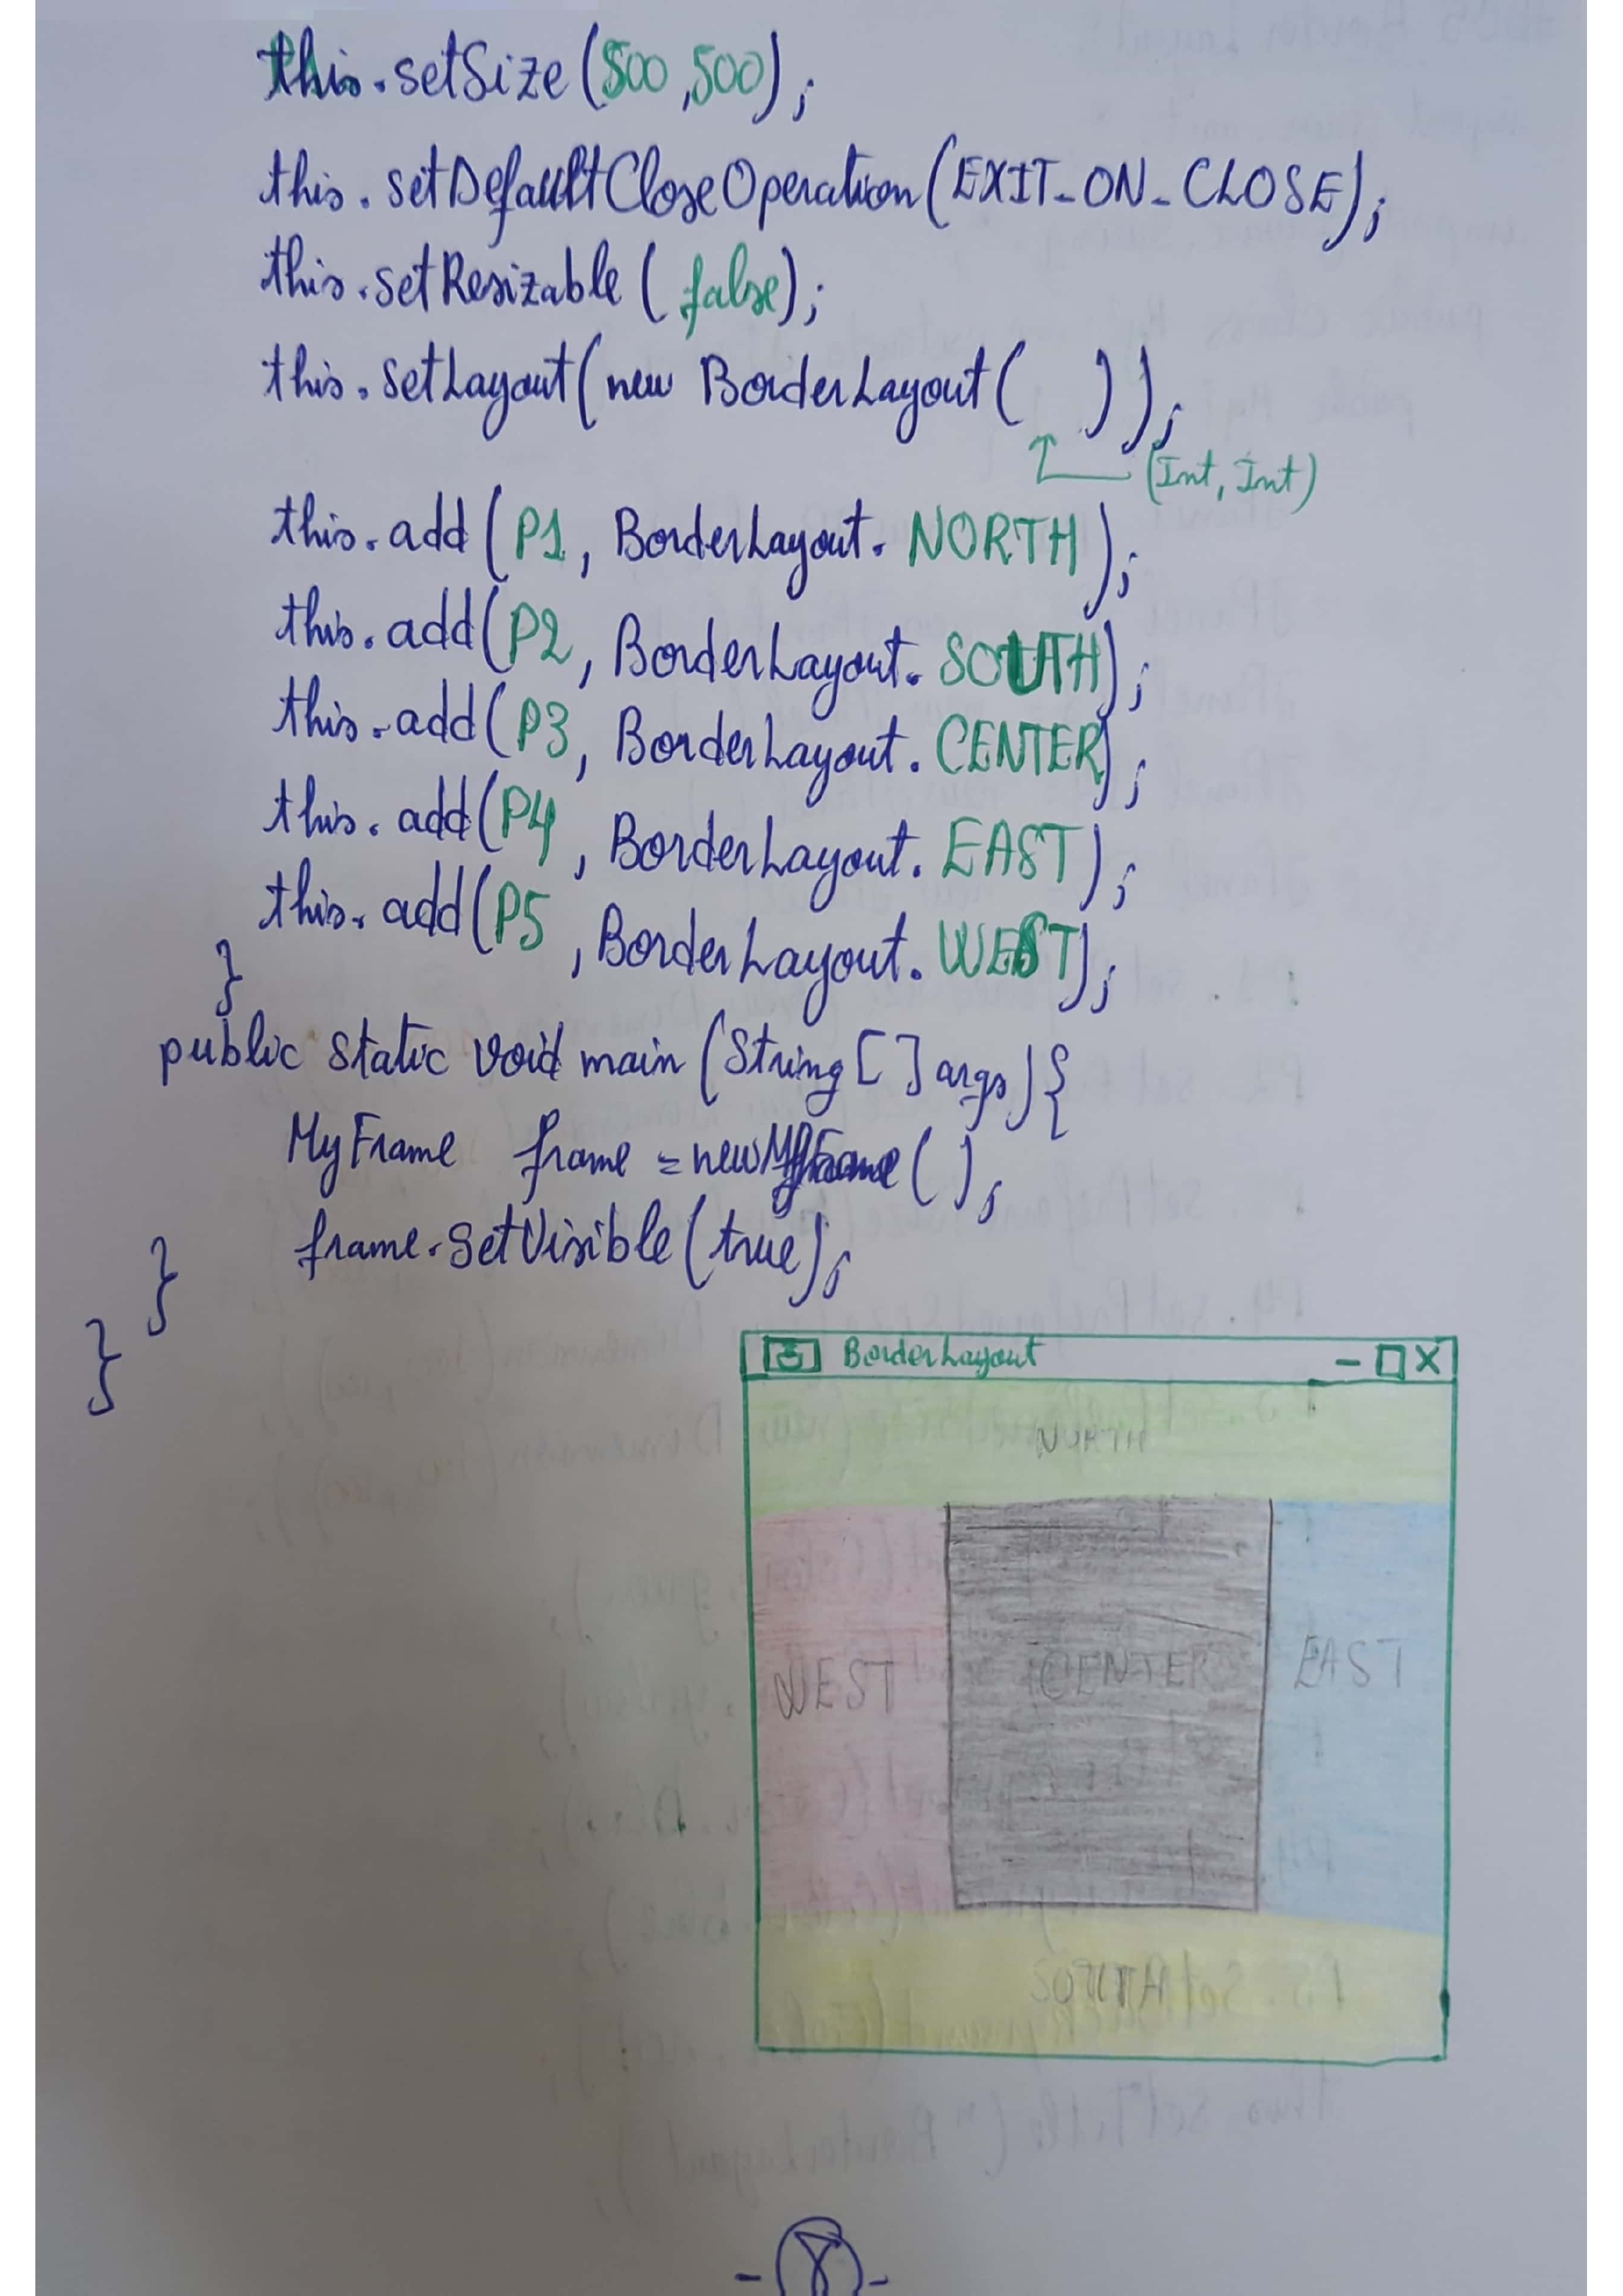 this.setSize(500,500);
this.setDefaultCloseOperation(EXIT_ON_CLOSE);
this.setResizable(false);
this.setLayout(new BorderLayout( ));
(Int, Int)
this.add(P1, BorderLayout.NORTH);
this.add(P2, BorderLayout.SOUTH);
this.add(P3, BorderLayout.CENTER);
this.add(P4, BorderLayout.EAST);
this.add(P5, BorderLayout.WEST);
}
public static void main (String [] args){
MyFrame frame = new MyFrame();
frame.setVisible(true);
}
}
BorderLayout - □ X
NORTH
WEST CENTER EAST
SOUTH